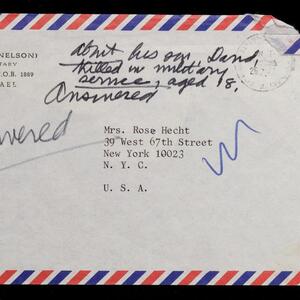 NELSON)
TARY
.O.B. 1889
AEL
about his son, David,
killed in military
service, aged 18.
Answered
wered
Mrs. Rose Hecht
39 West 67th Street
New York 10023
N. Y. C.
U. S. A.